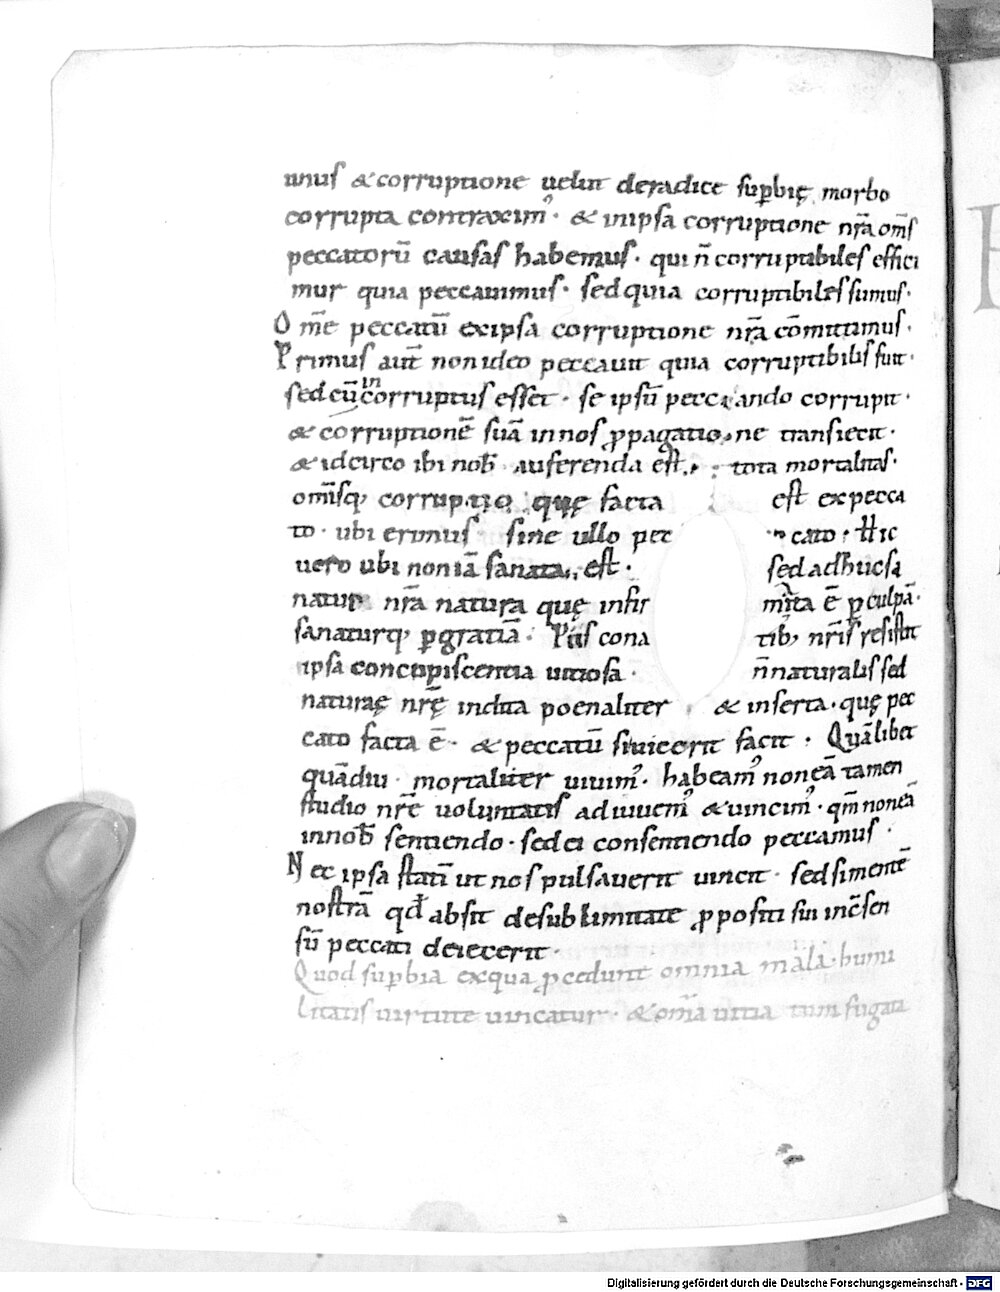 unus & corruptione uelut de radice sup̱bię morbo
corrupta contraximꝰ · & in ipsa corruptione nr̄a om̄s
peccatorū causas habemus · qui n̄ corruptibiles effici
mur quia peccauimus · sed quia corruptibiles sumus ·
Om̄e peccatū ex ipsa corruptione nr̄a cōmittimus ·
Primus aut̄ non ideo peccauit quia corruptibilis fuit ·
sed cū incorruptus esset · se ipsū peccando corrupit ·
& corruptionē suā in nos ꝓpagatione transiecit ·
& idcirco ibi nob̄ auferenda est · tota mortalitas ·
om̄isq; corruptio quę facta est ex pecca
to · ubi erimus sine ullo peccato · Hic
uero ubi non iā sanata est · sed adhuc sa
natur nr̄a natura quę infirmata ē ꝑ culpā ·
sanaturq; ꝑ gratiā · Piis conatib; nr̄is resistit
ipsa concupiscentia uitiosa · n̄ naturalis sed
naturaę nr̄ę indita poenaliter & inserta · quę pec
cato facta ē · & peccatū si uicerit facit · Quālibet
quādiu · mortaliter uiuimꝰ · habeamꝰ non eā tamen
studio nr̄ę uoluntatis adiuuemꝰ & uincimꝰ · qm̄ non eā
in nob̄ sentiendo · sed ei consentiendo peccamus ·
Nec ipsa statī ut nos pulsauerit uincit · sed si mentē
nostrā qd̄ absit de sublimitate ꝓpositi sui in c̄sen
sū peccati deiecerit ·
Quod sup̱bia ex qua ꝓcedunt omnia mala · humi
litatis uirtute uincatur · & om̄ia uitia tum fugata
Digitalisierung gefördert durch die Deutsche Forschungsgemeinschaft - DFG